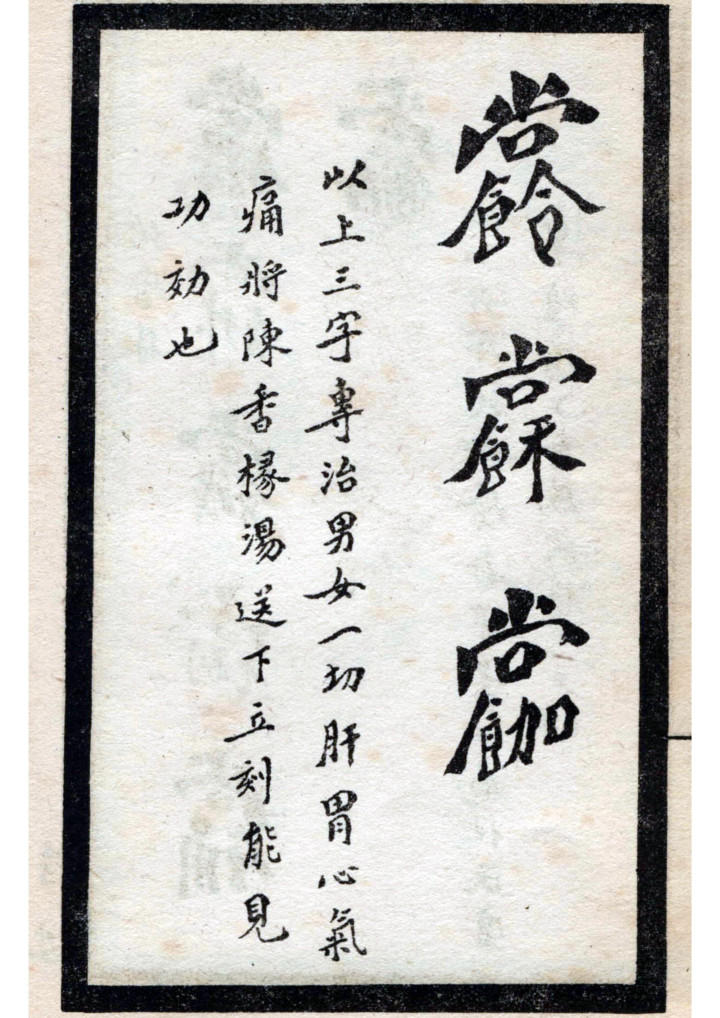 以上三字專治男女一切肝胃心氣
痛將陳香椽湯送下立刻能見
功効也